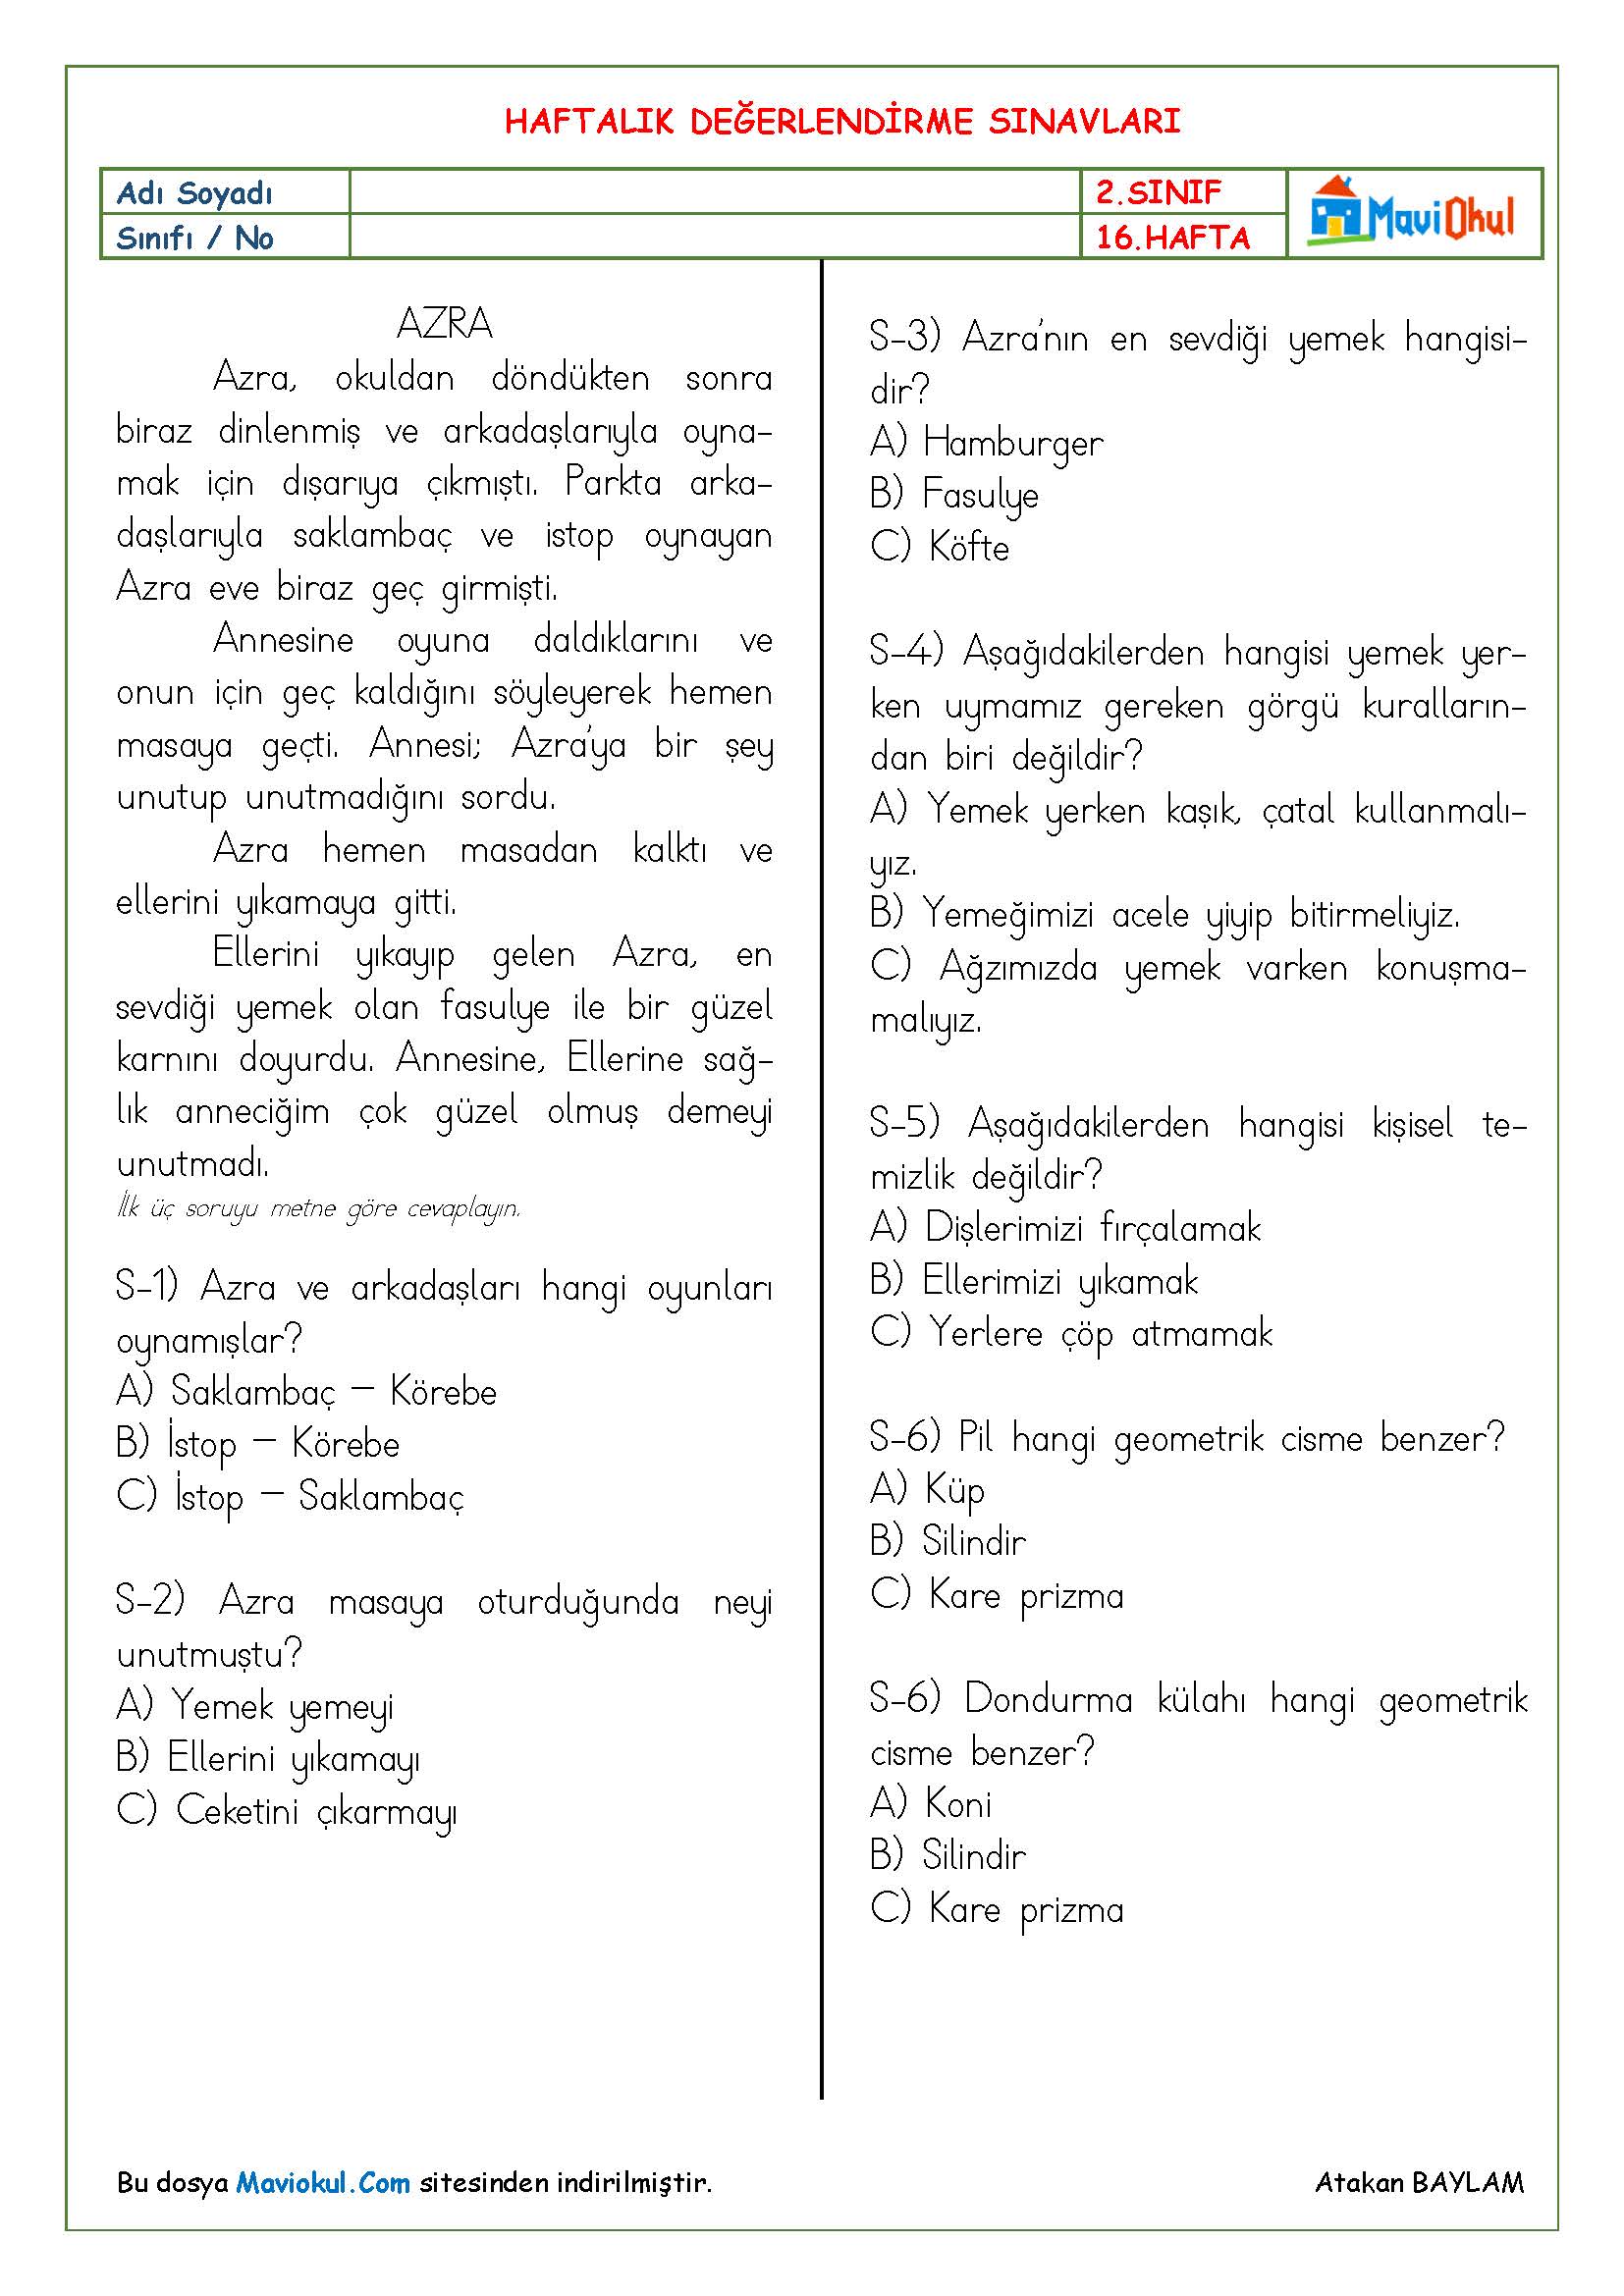 HAFTALIK DEĞERLENDİRME SINAVLARI
Adı Soyadı
2.SINIF
Sınıfı / No
16.HAFTA
MaviOkul
AZRA
Azra, okuldan döndükten sonra
biraz dinlenmiş ve arkadaşlarıyla oyna-
mak için dışarıya çıkmıştı. Parkta arka-
daşlarıyla saklambaç ve istop oynayan
Azra eve biraz geç girmişti.
Annesine oyuna daldıklarını ve
onun için geç kaldığını söyleyerek hemen
masaya geçti. Annesi; Azra'ya bir şey
unutup unutmadığını sordu.
Azra hemen masadan kalktı ve
ellerini yıkamaya gitti.
Ellerini yıkayıp gelen Azra, en
sevdiği yemek olan fasulye ile bir güzel
karnını doyurdu. Annesine, Ellerine sağ-
lık anneciğim çok güzel olmuş demeyi
unutmadı.
İlk üç soruyu metne göre cevaplayın.
S-1) Azra ve arkadaşları hangi oyunları
oynamışlar?
A) Saklambaç – Körebe
B) İstop – Körebe
C) İstop – Saklambaç
S-2) Azra masaya oturduğunda neyi
unutmuştu?
A) Yemek yemeyi
B) Ellerini yıkamayı
C) Ceketini çıkarmayı
S-3) Azra'nın en sevdiği yemek hangisi-
dir?
A) Hamburger
B) Fasulye
C) Köfte
S-4) Aşağıdakilerden hangisi yemek yer-
ken uymamız gereken görgü kuralların-
dan biri değildir?
A) Yemek yerken kaşık, çatal kullanmalı-
yız.
B) Yemeğimizi acele yiyip bitirmeliyiz.
C) Ağzımızda yemek varken konuşma-
malıyız.
S-5) Aşağıdakilerden hangisi kişisel te-
mizlik değildir?
A) Dişlerimizi fırçalamak
B) Ellerimizi yıkamak
C) Yerlere çöp atmamak
S-6) Pil hangi geometrik cisme benzer?
A) Küp
B) Silindir
C) Kare prizma
S-6) Dondurma külahı hangi geometrik
cisme benzer?
A) Koni
B) Silindir
C) Kare prizma
Bu dosya Maviokul.Com sitesinden indirilmiştir.
Atakan BAYLAM